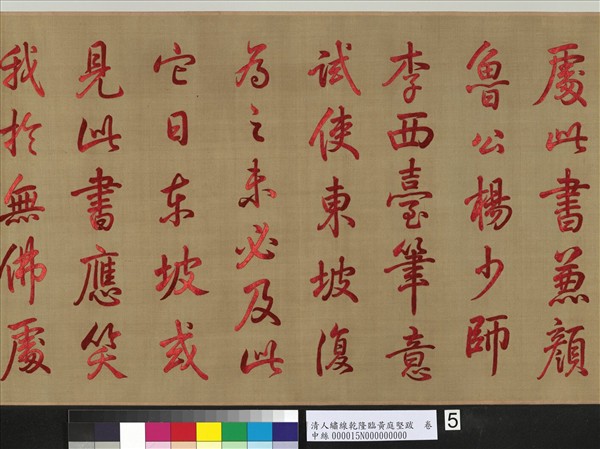 處此書兼顏
魯公楊少師
李西臺筆意
試使東坡復
為之未必及此
它日东坡或
見此書應笑
我於無佛處
清人繡線乾隆臨黃庭堅跋　卷
中絲000015N000000000
5